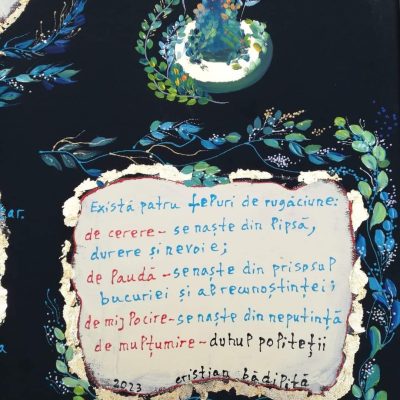 Există patru feluri de rugăciune:
de cerere - se naște din lipsă,
durere și nevoie;
de laudă - se naște din prisosul
bucuriei și al recunoștinței;
de mijlocire - se naște din neputință
de mulțumire - duhul politeții
2023 cristian bădiliță
ar.
a